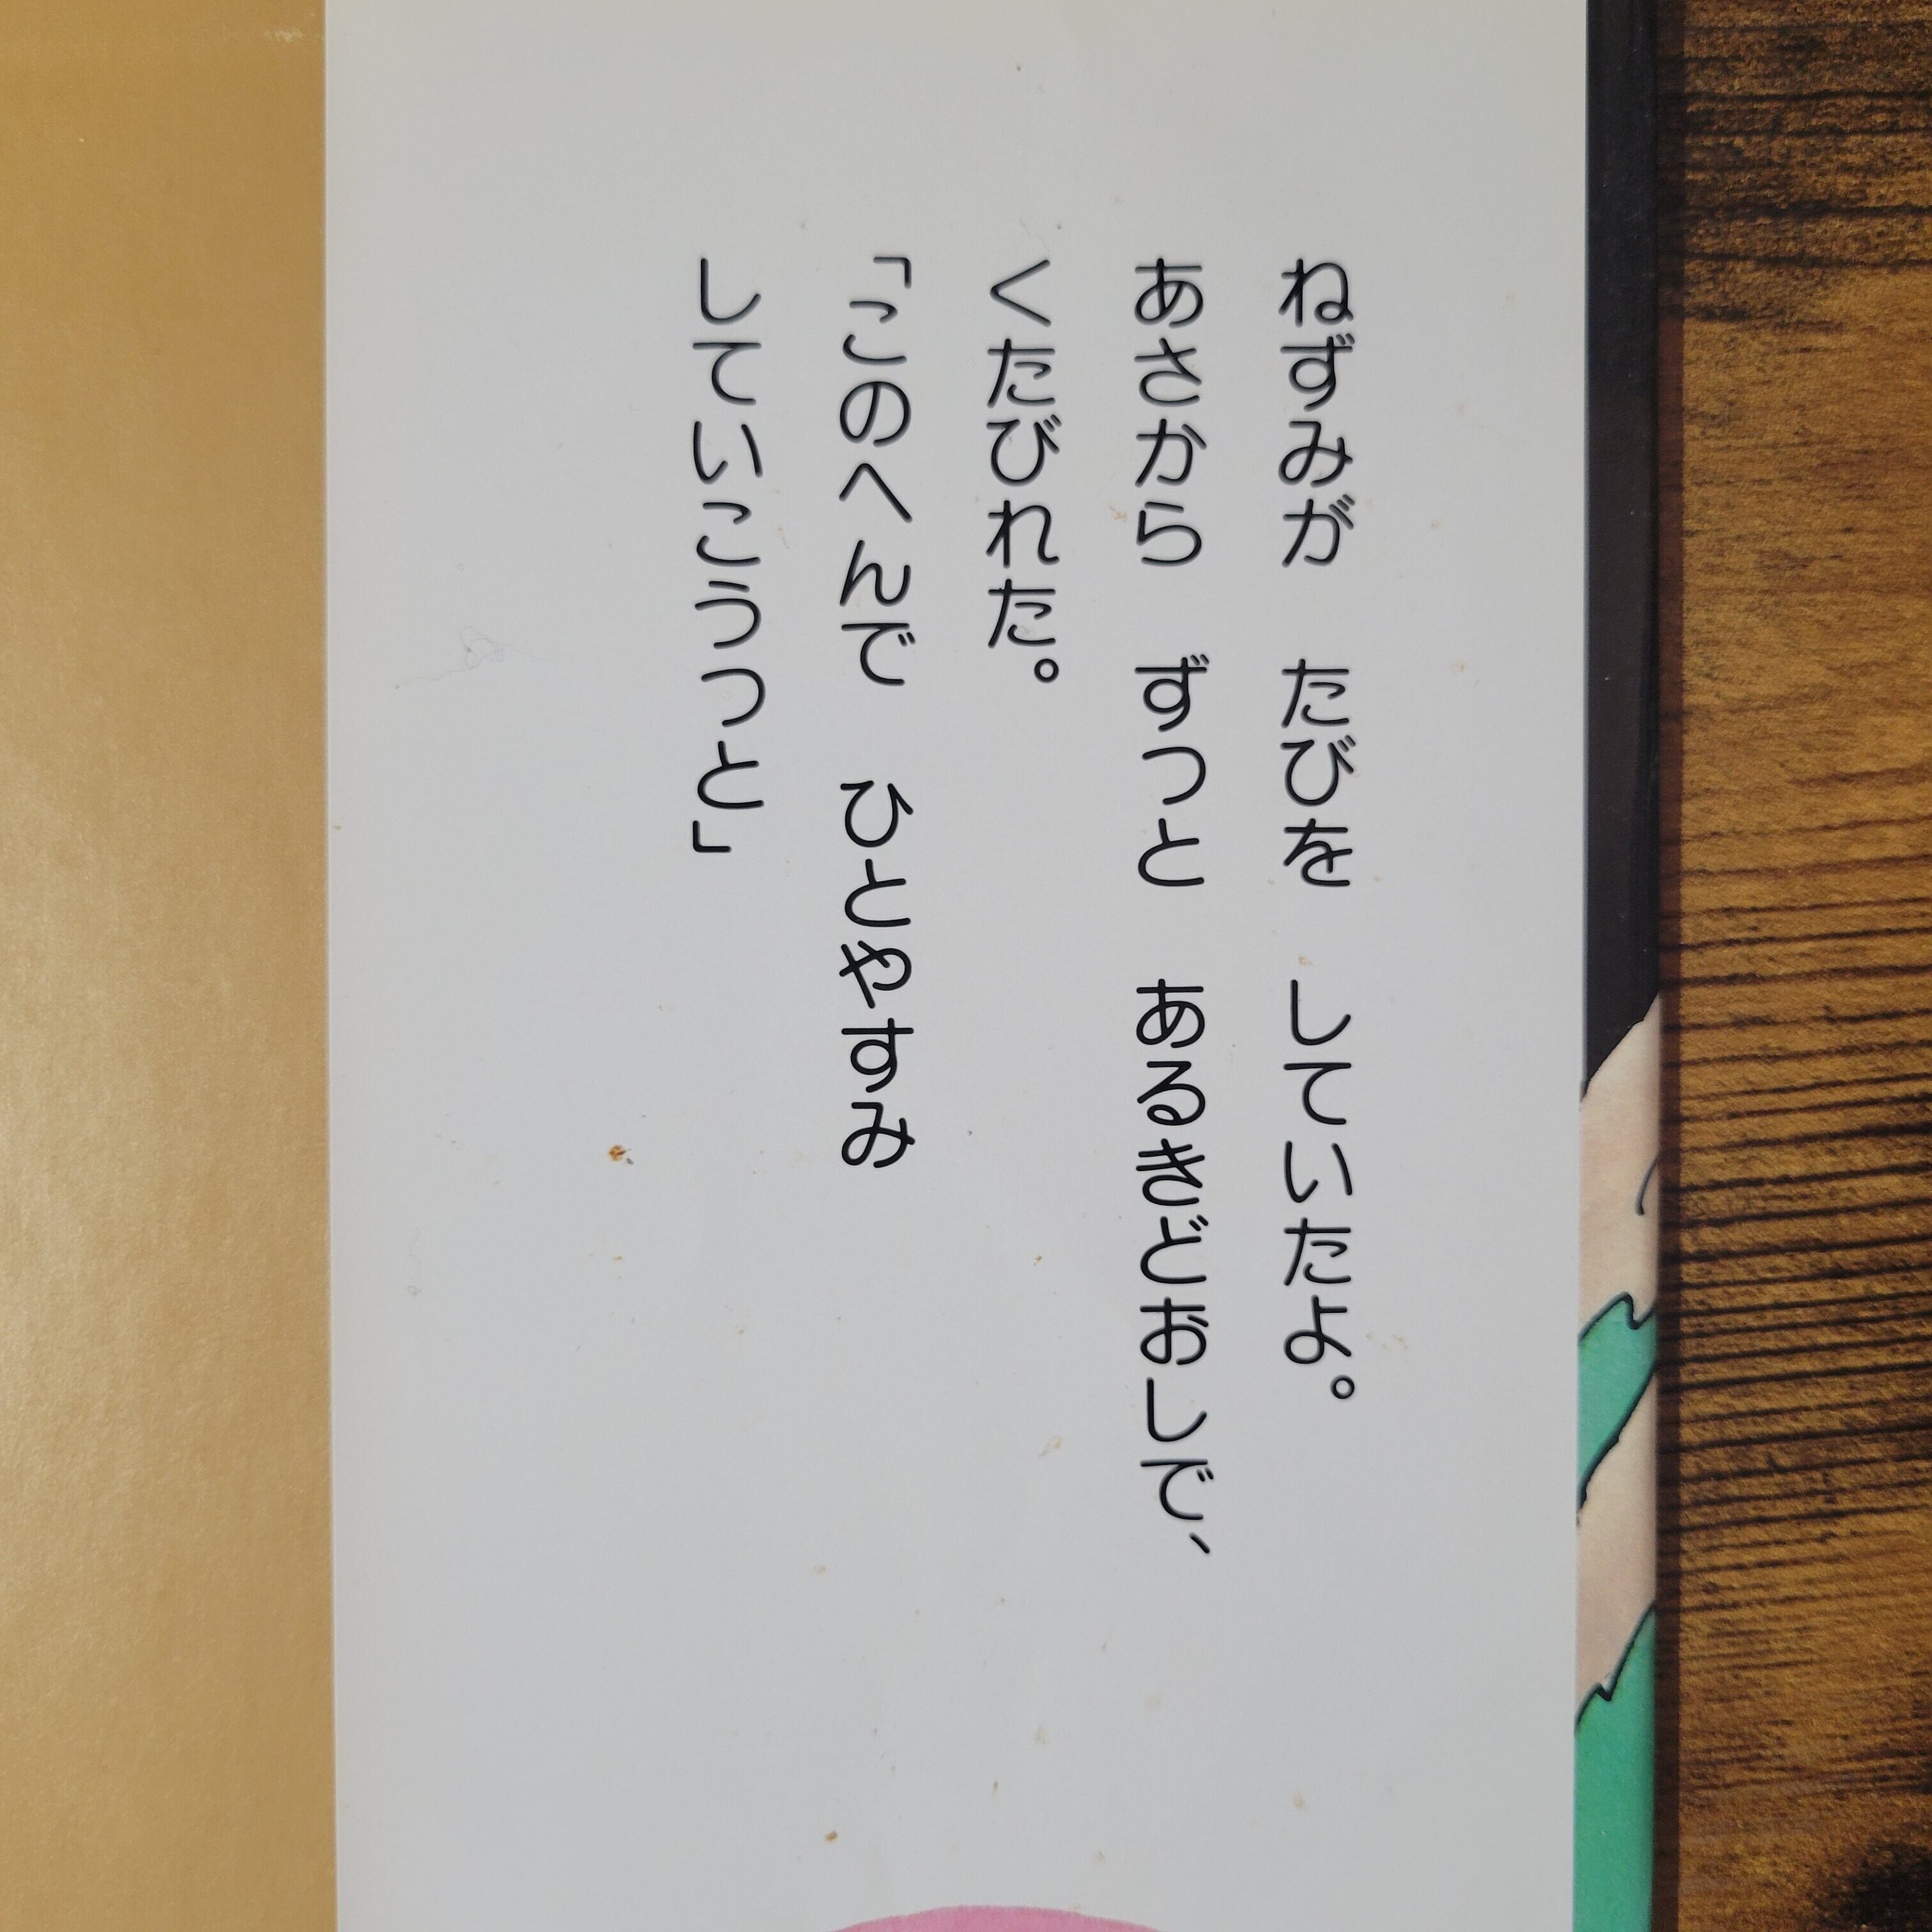 ねずみが　たびを　していたよ。
あさから　ずっと　あるきどおしで、
くたびれた。
「このへんで　ひとやすみ
していこうっと」